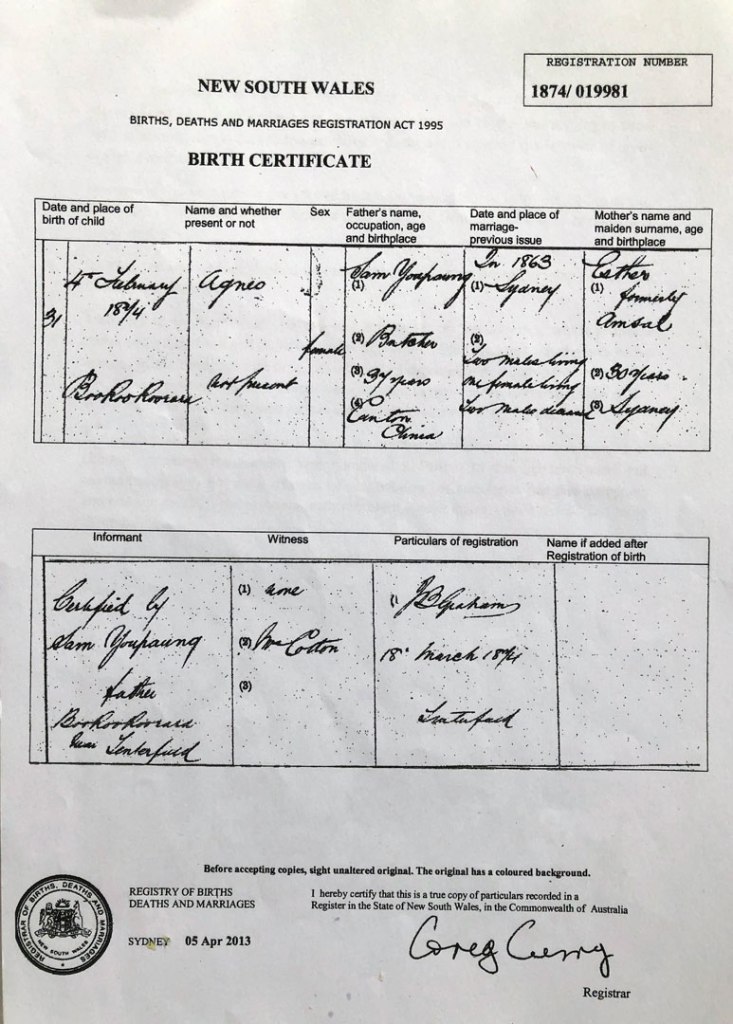 REGISTRATION NUMBER
1874/ 019981
NEW SOUTH WALES
BIRTHS, DEATHS AND MARRIAGES REGISTRATION ACT 1995
BIRTH CERTIFICATE
Date and place of
birth of child
Name and whether
present or not
Sex
Father's name,
occupation, age
and birthplace
Date and place of
marriage-
previous issue
Mother's name and
maiden surname, age
and birthplace
31
4th February
1874
BooRooRoorara
Agnes
not present
female
Sam Youpaung
(1)
(2) Butcher
(3) 37 years
(4)
Canton
China
In 1863
(1) Sydney
(2)
Two males living
one female living
Two males
Esther
(1) formerly
Amsal
(2) 30 years
(3) Sydney
Informant
Witness
Particulars of registration
Name if added after
Registration of birth
Certified by
Sam Youpaung
father
BooRooRoorara
near Tenterfield
(1) none
(2) Mrs Cotton
(3)
(1 JB Graham
18th March 1874
Tenterfield
Before accepting copies, sight unaltered original. The original has a coloured background.
REGISTRY OF BIRTHS
DEATHS AND MARRIAGES
SYDNEY 05 Apr 2013
I hereby certify that this is a true copy of particulars recorded in a
Register in the State of New South Wales, in the Commonwealth of Australia
Greg Curry
Registrar
REGISTRAR OF BIRTHS, DEATHS AND MARRIAGES
NEW SOUTH WALES